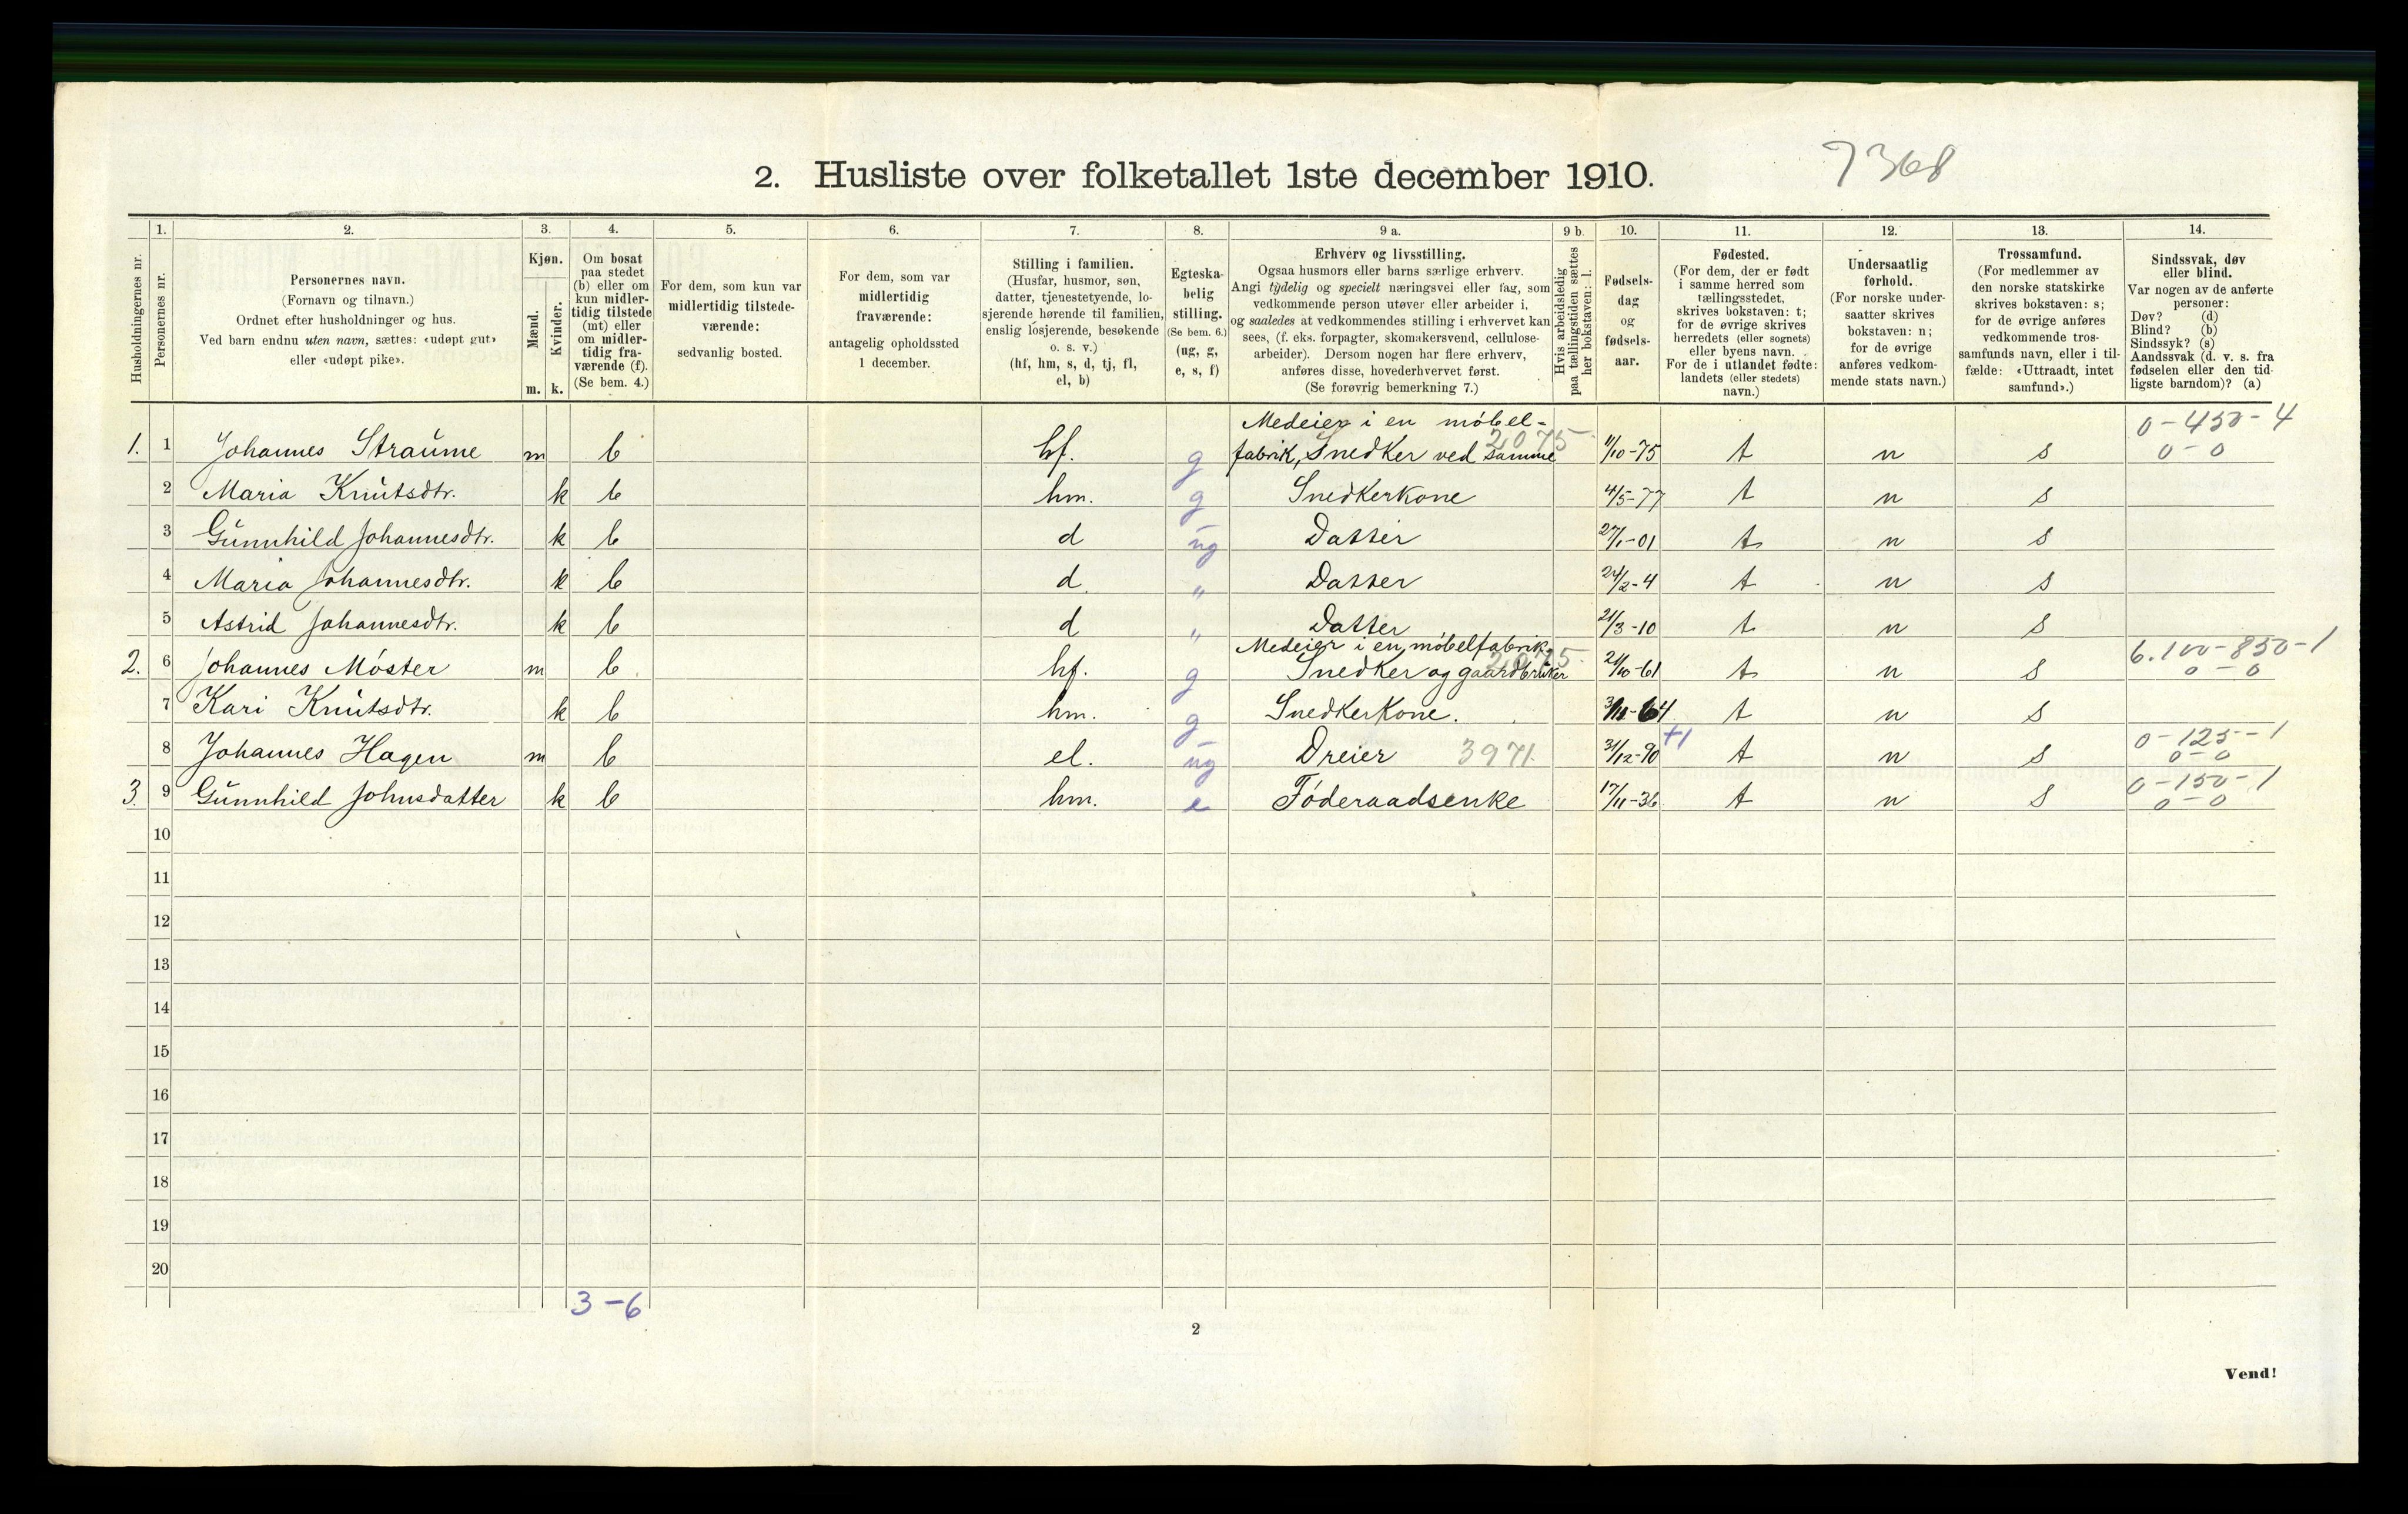 2. Husliste over folketallet 1ste december 1910.
7368
Husholdningernes nr.
1.
Personernes nr.
2.
Personernes navn.
(Fornavn og tilnavn.)
Ordnet efter husholdninger og hus.
Ved barn endnu uten navn, sættes: «udøpt gut»
eller «udøpt pike».
3.
Kjøn.
Mænd.
m.
Kvinder.
k.
4.
Om bosat
paa stedet
(b) eller om
kun midler-
tidig tilstede
(mt) eller
om midler-
tidig fra-
værende (f).
(Se bem. 4.)
5.
For dem, som kun var
midlertidig tilstede-
værende:
sedvanlig bosted.
6.
For dem, som var
midlertidig
fraværende:
antagelig opholdssted
1 december.
7.
Stilling i familien.
(Husfar, husmor, søn,
datter, tjenestetyende, lo-
sjerende hørende til familien,
enslig losjerende, besøkende
o. s. v.)
(hf, hm, s, d, tj, fl,
el, b)
8.
Egteska-
belig
stilling.
(Se bem. 6.)
(ug, g,
e, s, f)
9 a.
Erhverv og livsstilling.
Ogsaa husmors eller barns særlige erhverv.
Angi tydelig og specielt næringsvei eller fag, som
vedkommende person utøver eller arbeider i,
og saaledes at vedkommendes stilling i erhvervet kan
sees, (f. eks. forpagter, skomakersvend, cellulose-
arbeider). Dersom nogen har flere erhverv,
anføres disse, hovederhvervet først.
(Se forøvrig bemerkning 7.)
9 b.
Hvis arbeidsledig
paa tællingstiden sættes
her bokstaven: l.
10.
Fødsels-
dag
og
fødsels-
aar.
11.
Fødested.
(For dem, der er født
i samme herred som
tællingsstedet,
skrives bokstaven: t;
for de øvrige skrives
herredets (eller sognets)
eller byens navn.
For de i utlandet fødte:
landets (eller stedets)
navn.)
12.
Undersaatlig
forhold.
(For norske under-
saatter skrives
bokstaven: n;
for de øvrige
anføres vedkom-
mende stats navn.)
13.
Trossamfund.
(For medlemmer av
den norske statskirke
skrives bokstaven: s;
for de øvrige anføres
vedkommende tros-
samfunds navn, eller i til-
fælde: «Uttraadt, intet
samfund».)
14.
Sindssvak, døv
eller blind.
Var nogen av de anførte
personer:
Døv? (d)
Blind? (b)
Sindssyk? (s)
Aandssvak (d. v. s. fra
fødselen eller den tid-
ligste barndom)? (a)
Medeier i en møbel-
0-450-4
1. 1 Johannes Straume m b hf. g fabrik, Snedker ved samme 2075 1/10-75 t n s 0-0
2 Maria Knutsdtr. k b hm. g Snedkerkone 4/5-77 t n s
3 Gunnhild Johannesdtr. k b d ug Datter 27/1-01 t n s
4 Maria Johannesdtr. k b d. " Datter 24/2-4 t n s
5 Astrid Johannesdtr. k b d " Datter 21/3-10 t n s
Medeier i en møbelfabrik,
6.100-850-1
2. 6 Johannes Møster m b hf. g Snedker og gaardbruker 2075 21/10-61 t n s 0-0
7 Kari Knutsdtr. k b hm. g Snedkerkone. 3/11-64 t n s
8 Johannes Hagen m b el. ug Dreier 3971 31/12-90 +1 t n s 0-125-1
0-0
3. 9 Gunnhild Johnsdatter k b hm. e Føderaadsenke 17/11-36 t n s 0-150-1
0-0
10
11
12
13
14
15
16
17
18
19
20
3-6
2
Vend!